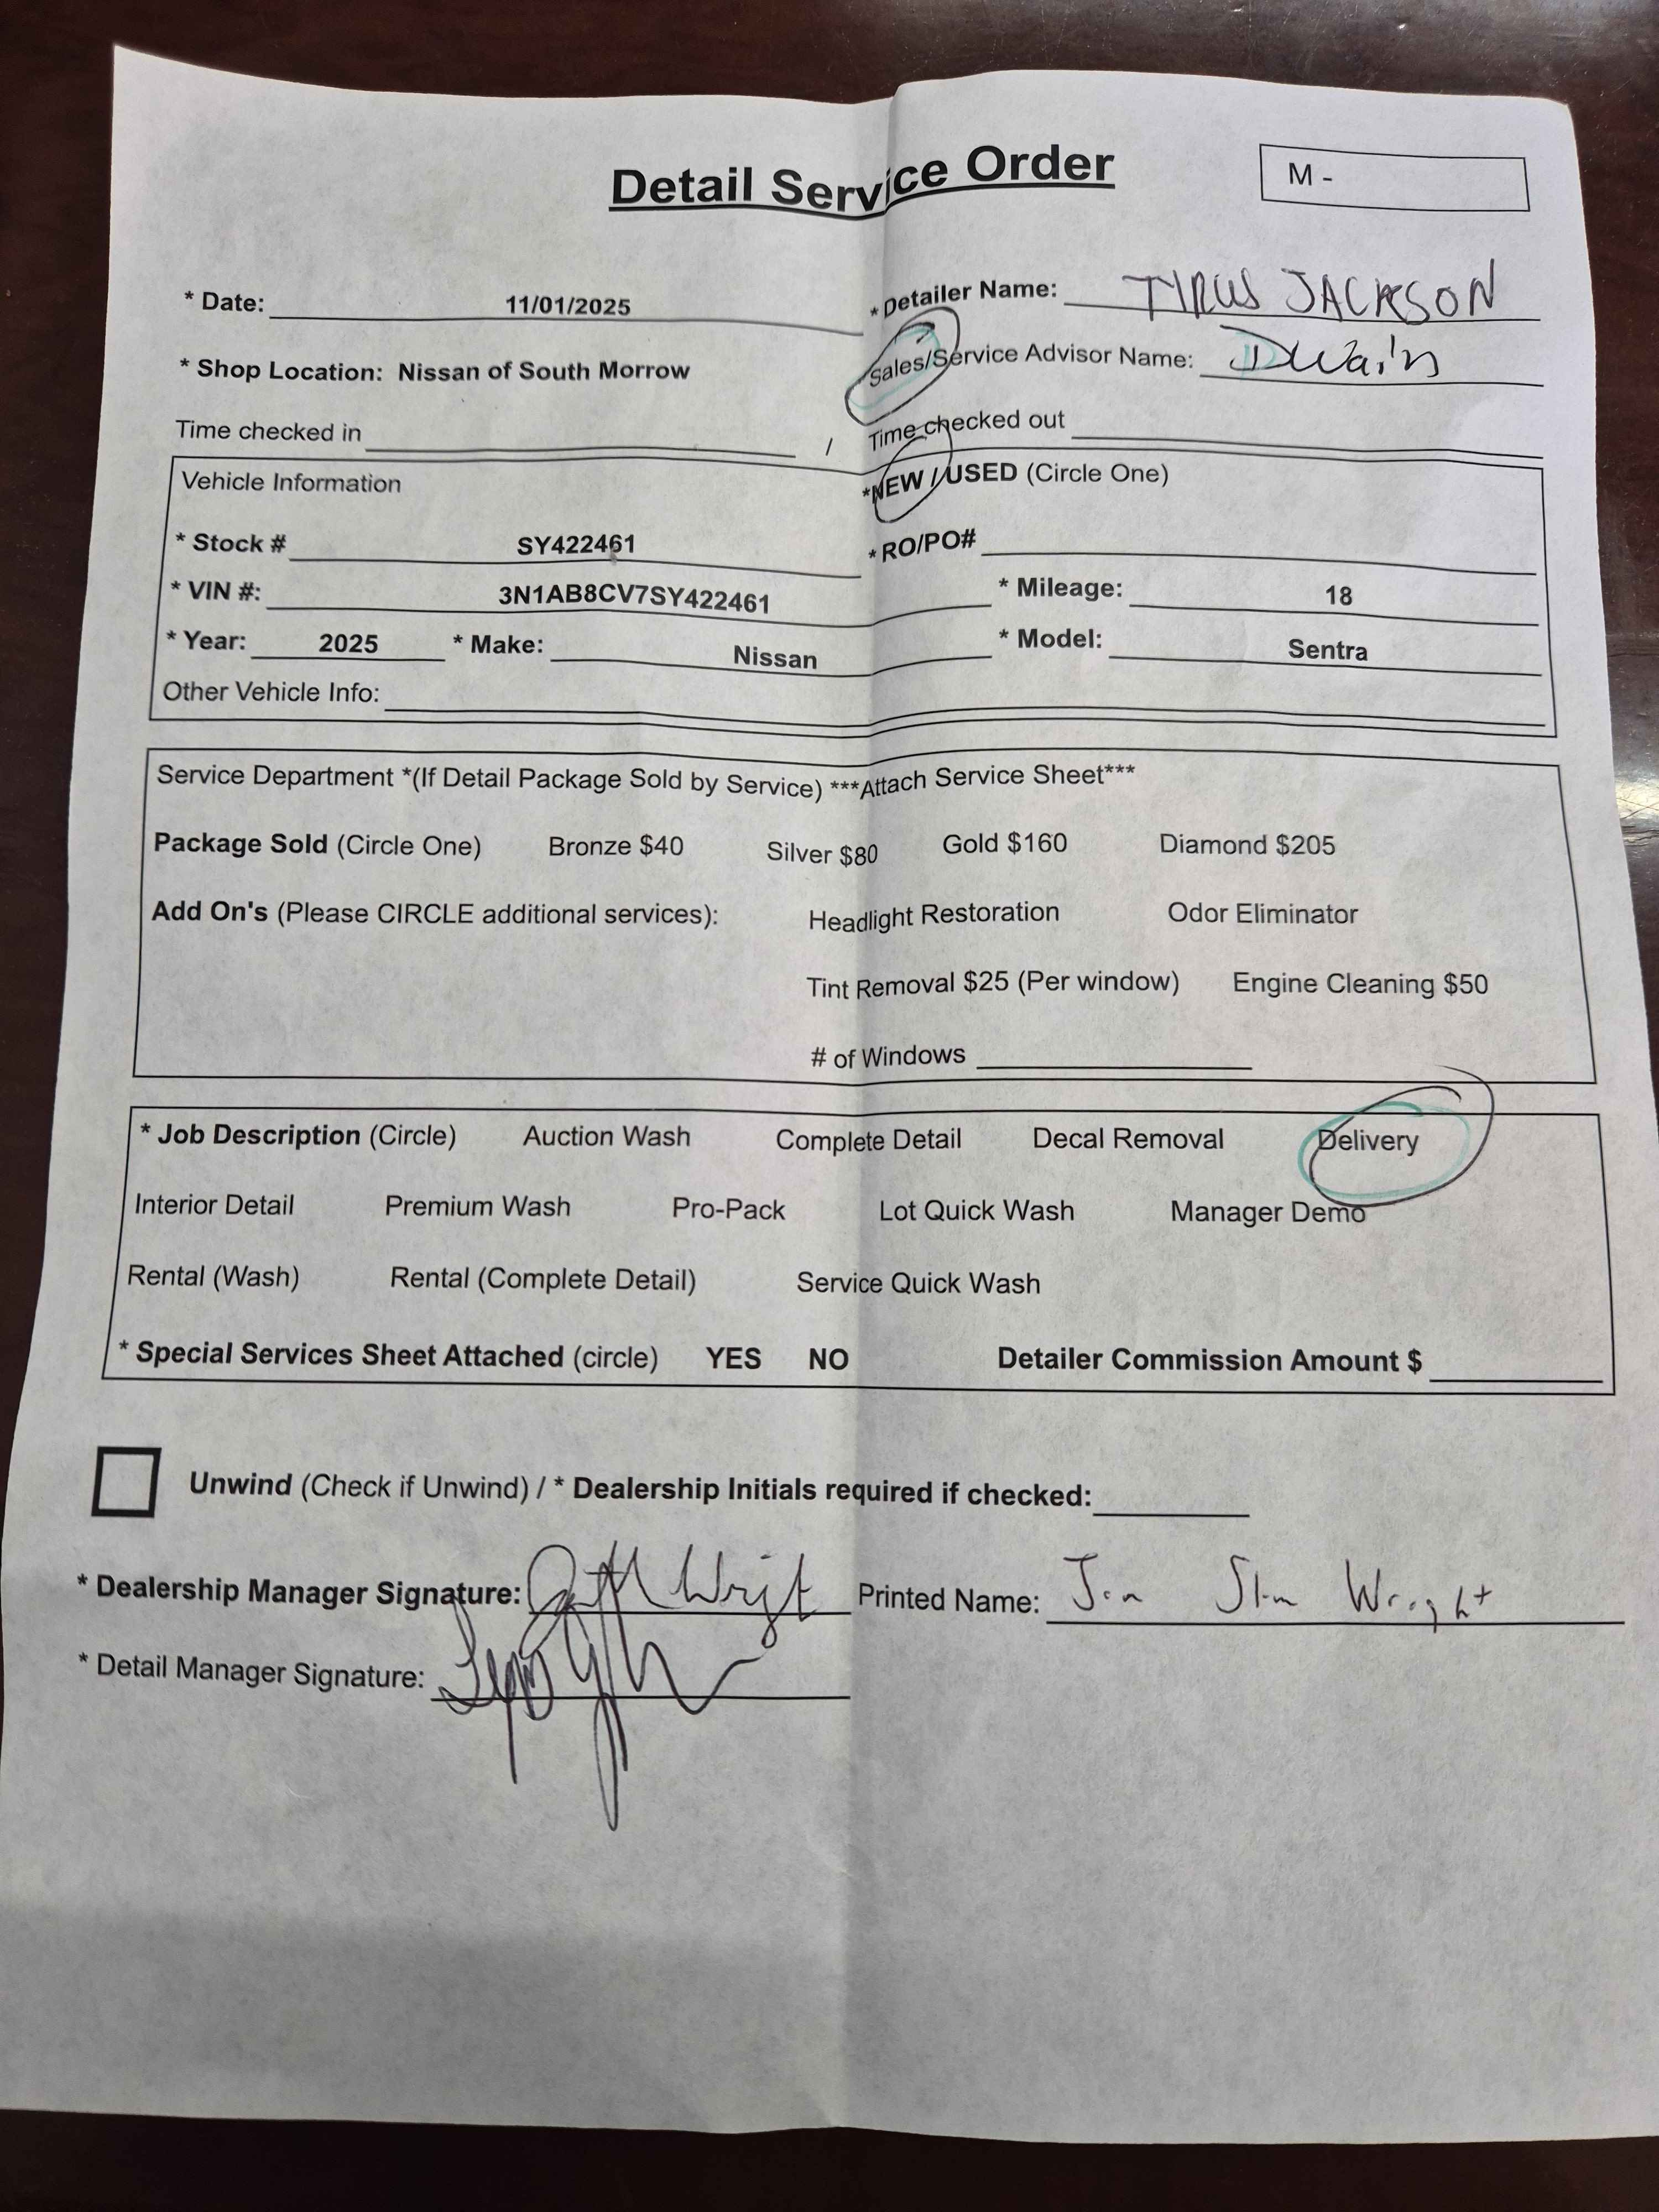 Detail Service Order
M -
* Date: 11/01/2025
* Detailer Name: TYRUS JACKSON
* Shop Location: Nissan of South Morrow
Sales/Service Advisor Name: Dwain
Time checked in / Time checked out
Vehicle Information
*NEW / USED (Circle One)
* Stock # SY422461
* RO/PO#
* VIN #: 3N1AB8CV7SY422461
* Mileage: 18
* Year: 2025 * Make: Nissan * Model: Sentra
Other Vehicle Info:
Service Department *(If Detail Package Sold by Service) ***Attach Service Sheet***
Package Sold (Circle One) Bronze $40 Silver $80 Gold $160 Diamond $205
Add On's (Please CIRCLE additional services): Headlight Restoration Odor Eliminator
Tint Removal $25 (Per window) Engine Cleaning $50
# of Windows
* Job Description (Circle) Auction Wash Complete Detail Decal Removal Delivery
Interior Detail Premium Wash Pro-Pack Lot Quick Wash Manager Demo
Rental (Wash) Rental (Complete Detail) Service Quick Wash
* Special Services Sheet Attached (circle) YES NO Detailer Commission Amount $
Unwind (Check if Unwind) / * Dealership Initials required if checked:
* Dealership Manager Signature: Wright Printed Name: Jon Wright
* Detail Manager Signature: